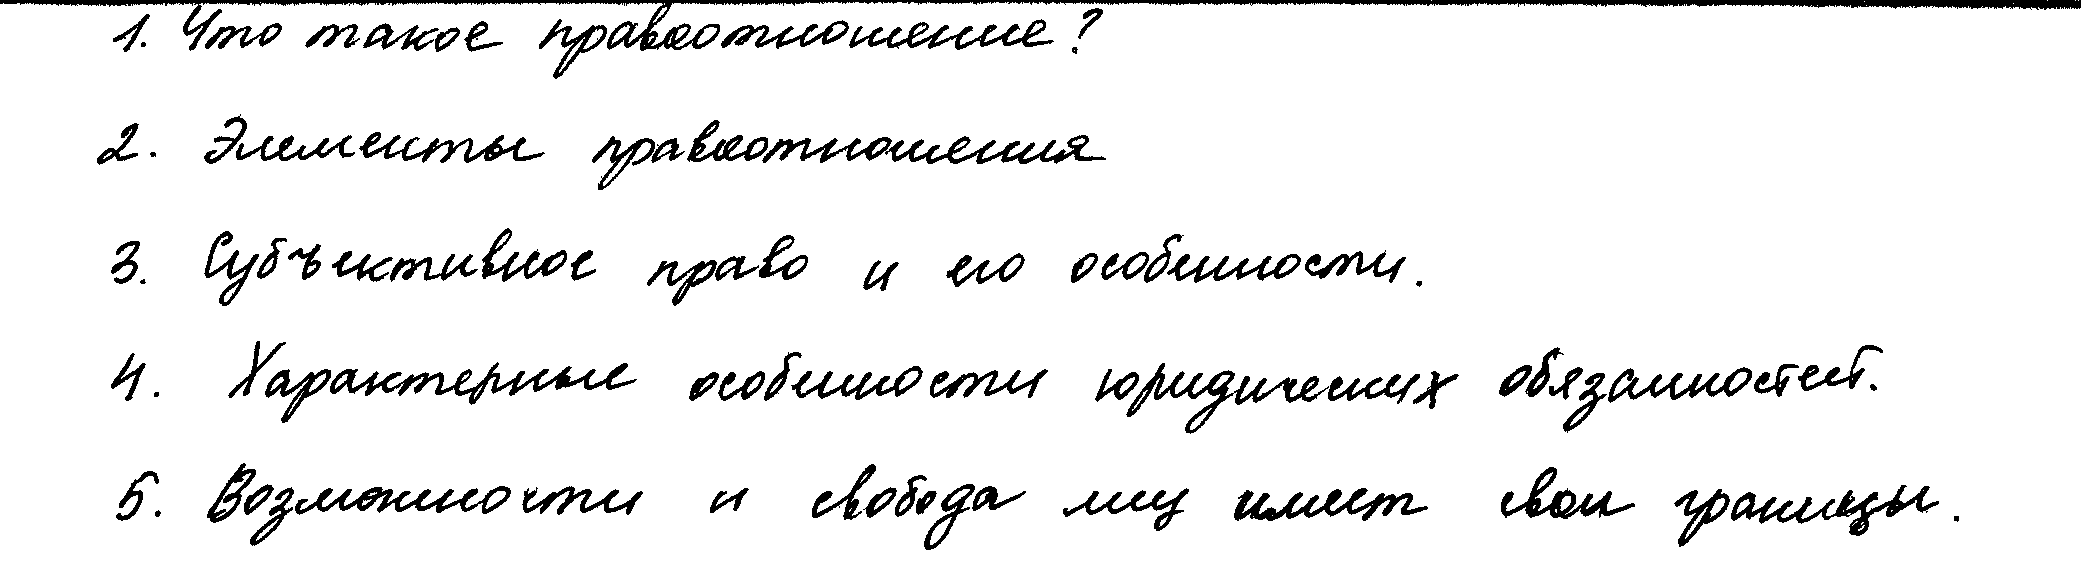 1. Что такое правоотношение?
2. Элементы правоотношения
3. Субъективное право и его особенности.
4. Характерные особенности юридических обязанностей.
5. Возможности и свобода лиц имеет свои границы.